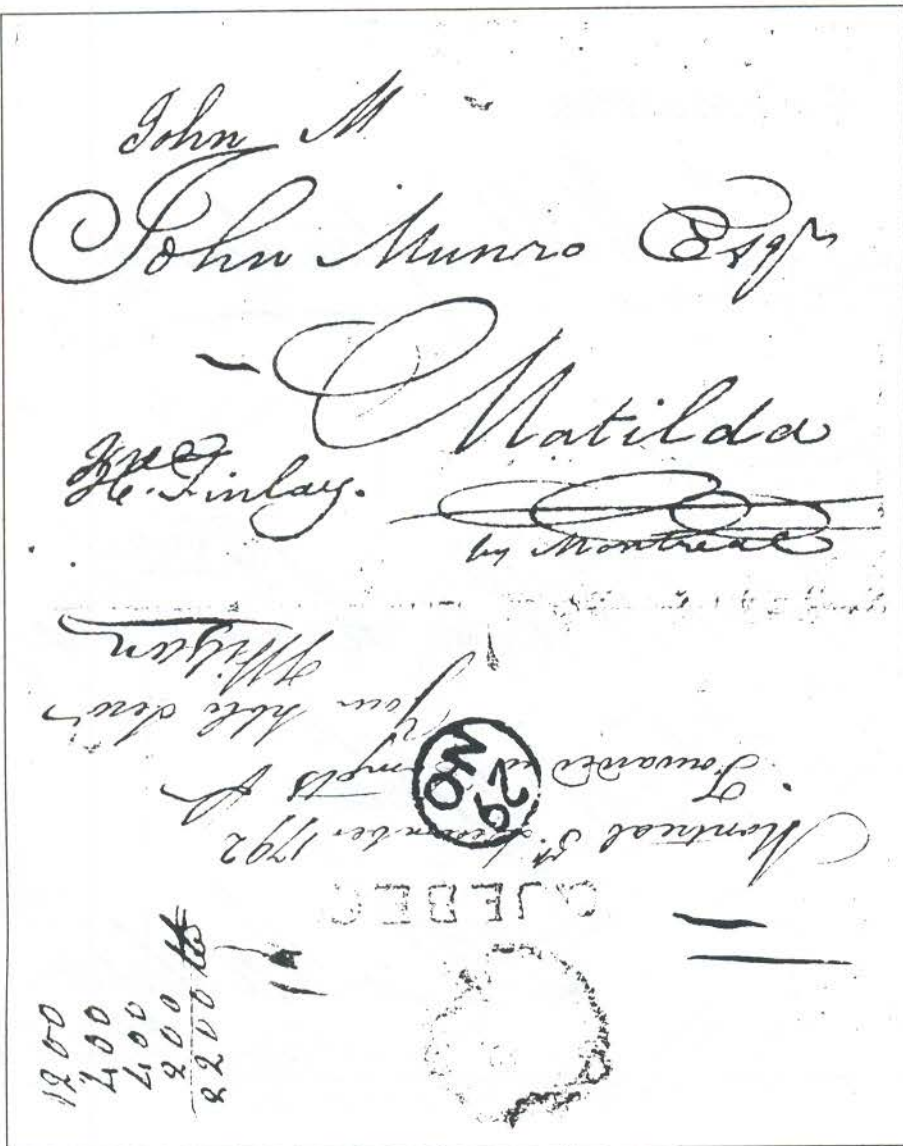 John M
John Munro Esqr
Matilda
H. Finlay.
by Montreal
Montreal 5th December 1792
Forwarded by
Your hble Servt
NO
29
QUEBEC
1200
400
400
200
2200